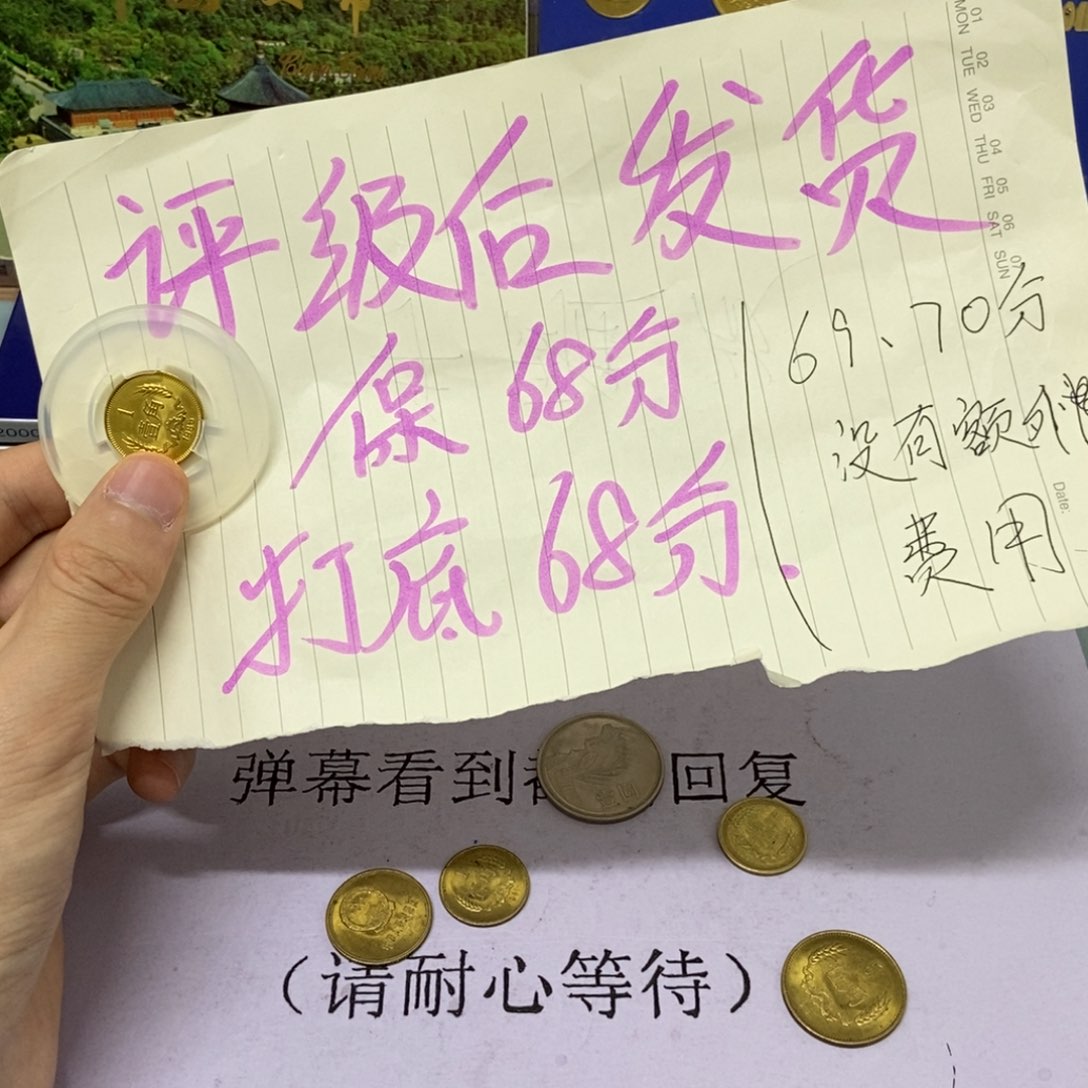 评级后发货
保68分
打底68分.
69、70分
没有额外
费用
01 02 03 04 05 06 07
MON TUE WED THU FRI SAT SUN
Date:
1
壹角
2000
弹幕看到都会回复
(请耐心等待)